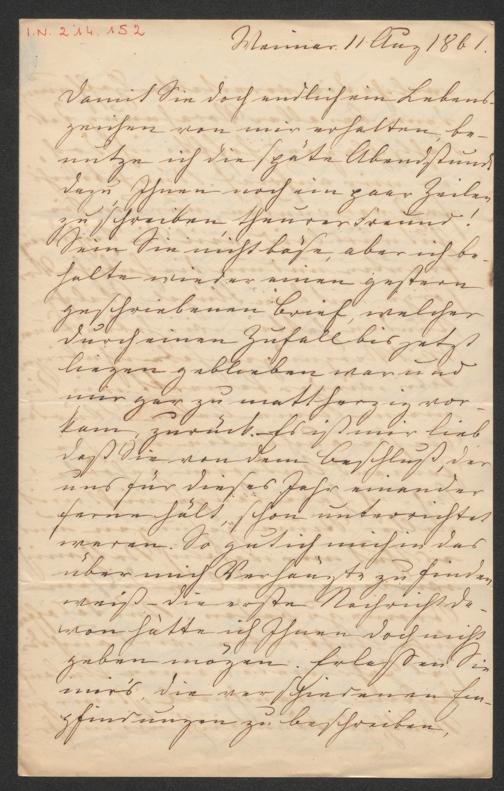 I.N. 214.152
Weimar 11 Aug 1861.
Damit Sie doch endlich ein Lebens-
zeichen von mir erhalten, be-
nutze ich die späte Abendstunde
dazu Ihnen noch ein paar Zeilen
zu schreiben, theurer Freund!
Sein Sie nicht böse, aber ich be-
halte wieder einen gestern
geschriebenen Brief, welcher
durch einen Zufall bis jetzt
liegen geblieben war und
mir gar zu mattherzig vor-
kam, zurück. Es ist mir lieb
daß Sie von dem Beschluß, der
uns für dieses Jahr einander
ferne hält, schon unterrichtet
waren. So gut ich mich in das
über mich Verhängte zu finden
weiß – die erste Nachricht da-
von hätte ich Ihnen doch nicht
geben mögen. Erlassen Sie
mir's, die verschiedenen Em-
pfindungen zu beschreiben,